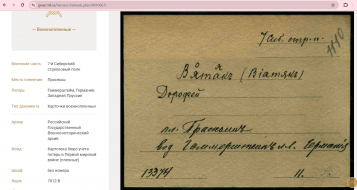 Военнопленные
Воинская часть
7-й Сибирский стрелковый полк
Место пленения
Прасныш
Лагерь
Гаммерштейн, Германия, Западная Пруссия
Тип документа
Карточка военнопленных
Архив
Российский Государственный Военно-исторический архив
Фонд
Картотека бюро учета потерь в Первой мировой войне (пленные)
Шкаф
без номера
Ящик
7012-В
7 Сиб. стр. п.
1110
Вятякъ (Віатякъ)
Дорофей
пл. Праснышъ
вод Гаммерштейнъ
Германія
13374